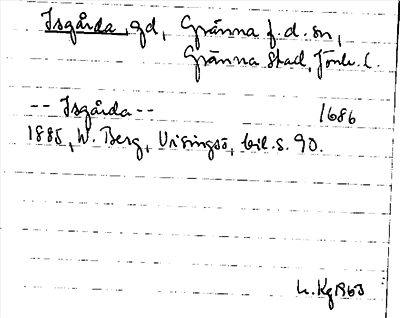 Isgårda, gd, Gränna f.d. sn,
Gränna stad, Jönk. l.
-- Isgårda -- 1686
1885, W. Berg, Visingsö, bil. s. 90.
1963